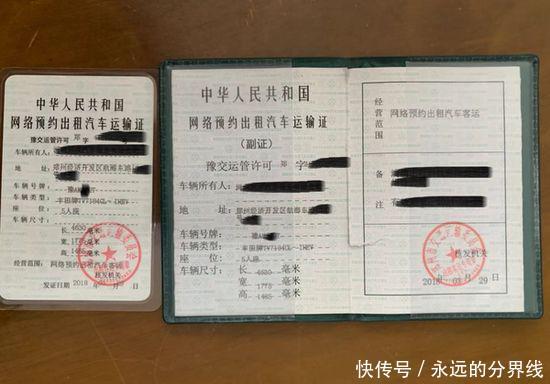 中华人民共和国
网络预约出租汽车运输证
豫交运管许可 郑 字
车辆所有人:
地 址: 郑州经济开发区航海东路
车辆号牌: 豫A
车辆类型: 丰田牌TV7184GL-IHEV
座 位: 5人座
车辆尺寸:
长 4630 毫米
宽 1775 毫米
高 1485 毫米
经营范围: 网络预约出租汽车客运
核发机关
发证日期 2018 年 月 日
中华人民共和国
网络预约出租汽车运输证
(副证)
豫交运管许可 郑 字
车辆所有人:
地 址: 郑州经济开发区航海东路
车辆号牌: 豫A
车辆类型: 丰田牌TV7184GL-IHEV
座 位: 5人座
车辆尺寸: 长 4630 毫米
宽 1775 毫米
高 1485 毫米
经营范围 网络预约出租汽车客运
备注
核发机关
2018 年 03 月 29 日
快传号/永远的分界线